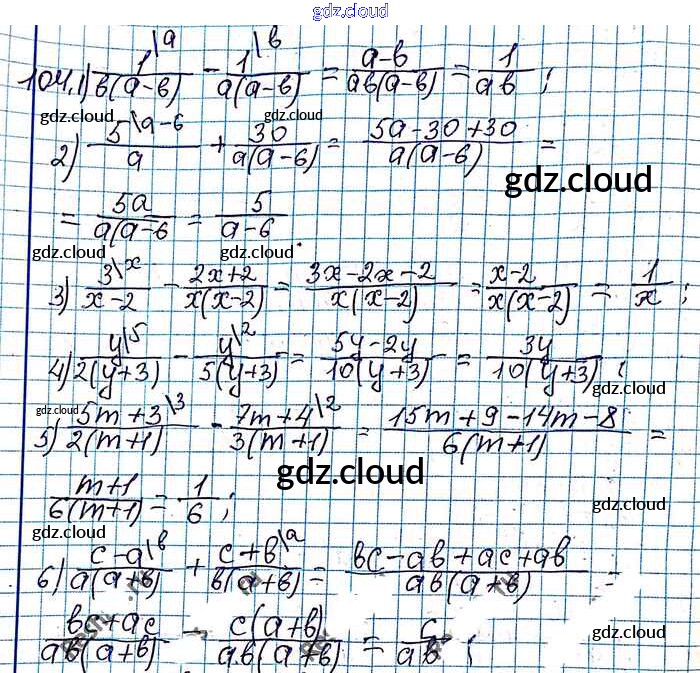 gdz.cloud
104.1) 1\a / b(a-b) - 1\b / a(a-b) = a-b / ab(a-b) = 1 / ab ;
gdz.cloud
2) 5\a-6 / a + 30 / a(a-6) = 5a-30+30 / a(a-6) =
gdz.cloud
= 5a / a(a-6 = 5 / a-6 .
gdz.cloud gdz.cloud
3) 3\x / x-2 - 2x+2 / x(x-2) = 3x-2x-2 / x(x-2) = x-2 / x(x-2) = 1 / x ;
4) y\5 / 2(y+3) - y\2 / 5(y+3) = 5y-2y / 10(y+3) = 3y / 10(y+3) ;
gdz.cloud gdz.cloud
5) 5m+3\3 / 2(m+1) - 7m+4\2 / 3(m+1) = 15m+9-14m-8 / 6(m+1) =
gdz.cloud
m+1 / 6(m+1) = 1 / 6 ;
gdz.cloud gdz.cloud
6) c-a\b / a(a+b) + c+b\a / b(a+b) = bc-ab+ac+ab / ab(a+b) =
bc+ac / ab(a+b) = c(a+b) / ab(a+b) = c / ab ;
gdz.cloud